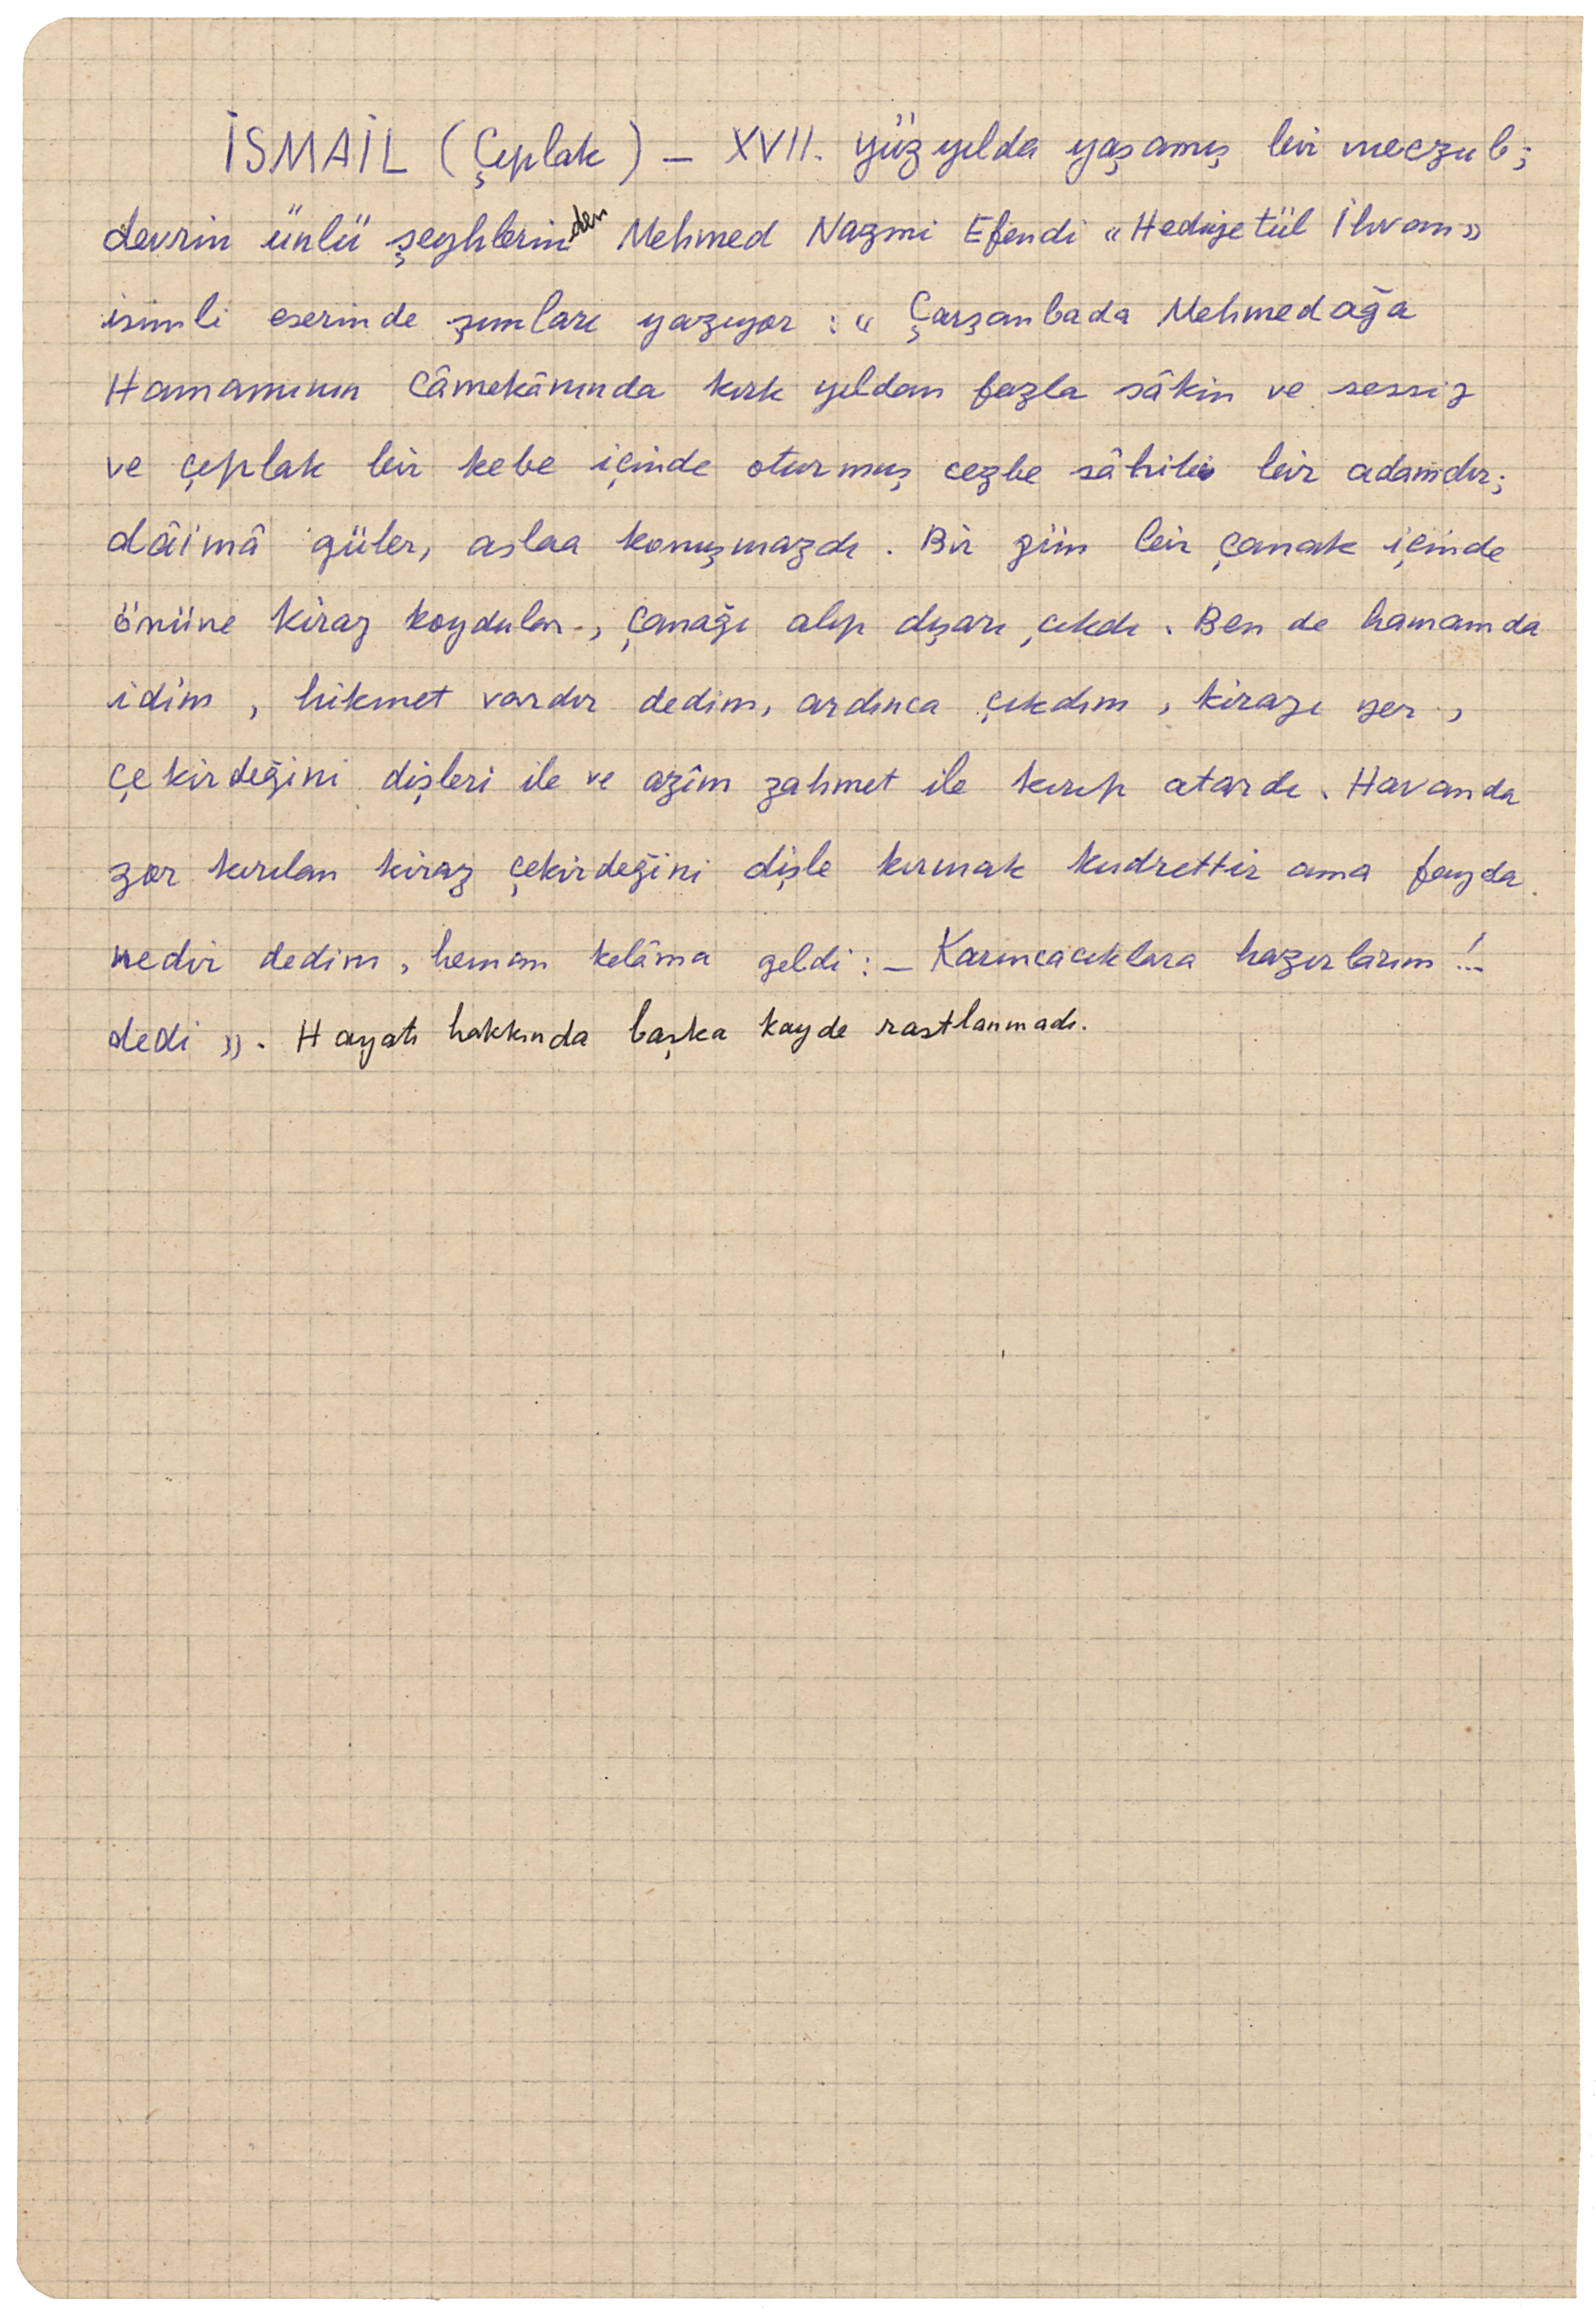 İSMAİL (Çıplak) – XVII. yüzyılda yaşamış bir meczub;
devrin ünlü şeyhlerinden Mehmed Nazmi Efendi «Hediyetül İhvan»
isimli eserinde şunları yazıyor : « Çarşanbada Mehmedağa
Hamamının Câmekânında kırk yıldan fazla sâkin ve sessiz
ve çıplak bir kebe içinde oturmuş cezbe sâhibi bir adamdır;
dâimâ güler, aslaa konuşmazdı. Bir gün bir çanak içinde
önüne kiraz koydular, çanağı alıp dışarı çıkdı. Ben de hamamda
idim, hikmet vardır dedim, ardınca çıkdım, kirazı yer,
çekirdeğini dişleri ile ve azîm zahmet ile kırıp atardı. Havanda
zor kırılan kiraz çekirdeğini dişle kırmak kudrettir ama fayda
nedir dedim, heman kelâma geldi : – Karıncacıklara hazırlarım!..
dedi ». Hayatı hakkında başka kayde rastlanmadı.